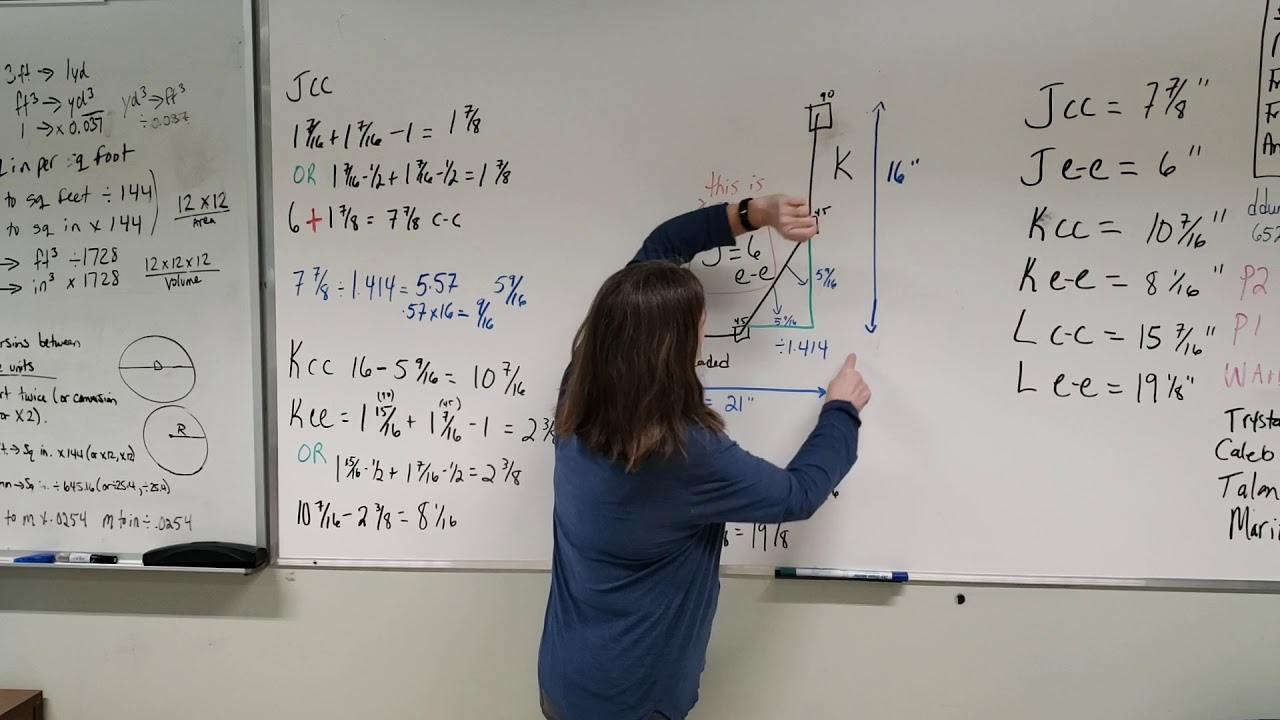 3ft → 1yd
ft³ → yd³ yd³ → ft³
1 → x 0.037 ÷ 0.037
in per sq foot
to sq feet ÷ 144
to sq in x 144
12 x 12
Area
→ ft³ ÷ 1728
→ in³ x 1728
12 x 12 x 12
Volume
between
units
twice (or conversion
or x 2).
D
R
→ Sq in. x 144 (or x12, x12)
→ Sq in. ÷ 645.16 (or ÷25.4, ÷25.4)
to m x .0254 m to in ÷ .0254
Jcc
1 7/16 + 1 7/16 - 1 = 1 7/8
OR 1 7/16 - 1/2 + 1 7/16 - 1/2 = 1 7/8
6 + 1 7/8 = 7 7/8 c-c
7 7/8 ÷ 1.414 = 5.57 5 9/16
.57 x 16 = 9/16
Kcc 16 - 5 9/16 = 10 7/16
(90) (45)
Kee = 1 15/16 + 1 7/16 - 1 = 2 3/8
OR 1 15/16 - 1/2 + 1 7/16 - 1/2 = 2 3/8
10 7/16 - 2 3/8 = 8 1/16
90
K
16"
this is
45
J = 6
e-e
5 9/16
45
5 9/16
÷ 1.414
= 21"
= 19 1/8
Jcc = 7 7/8"
Je-e = 6"
Kcc = 10 7/16"
Ke-e = 8 1/16"
Lc-c = 15 7/16"
Le-e = 19 1/8"
P2
P1
Caleb